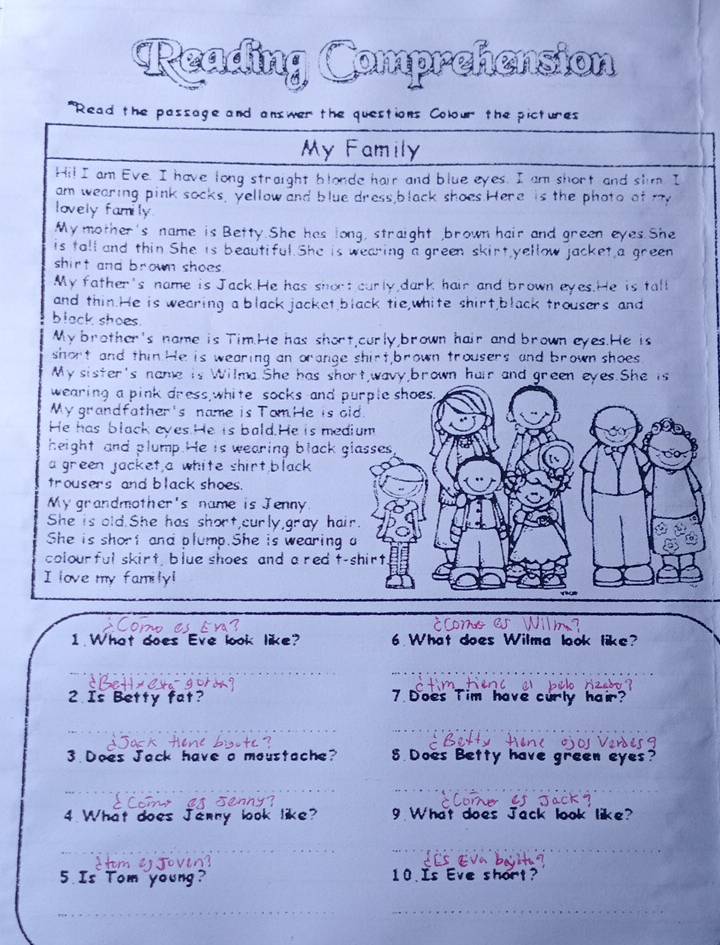 Reading Comprehension
*Read the passage and answer the questions Colour the pictures
My Family
Hi! I am Eve. I have long straight blonde hair and blue eyes. I am short and slim. I
am wearing pink socks, yellow and blue dress,black shoes.Here is the photo of my
lovely family.
My mother's name is Betty.She has long, straight ,brown hair and green eyes.She
is tall and thin.She is beautiful.She is wearing a green skirt,yellow jacket,a green
shirt and brown shoes.
My father's name is Jack.He has short,curly,dark hair and brown eyes.He is tall
and thin.He is wearing a black jacket,black tie,white shirt,black trousers and
black shoes.
My brother's name is Tim.He has short,curly,brown hair and brown eyes.He is
short and thin.He is wearing an orange shirt,brown trousers and brown shoes
My sister's name is Wilma.She has short,wavy,brown hair and green eyes.She is
wearing a pink dress,white socks and purple shoes.
My grandfather's name is Tom.He is old.
He has black eyes.He is bald.He is medium
height and plump.He is wearing black glasses,
a green jacket,a white shirt,black
trousers and black shoes.
My grandmother's name is Jenny.
She is old.She has short,curly,gray hair.
She is short and plump.She is wearing a
colourful skirt, blue shoes and a red t-shirt
I love my family!
¿Como es Eva?
1.What does Eve look like?
¿Betty está gorda?
2.Is Betty fat?
¿Jack tiene bigote?
3.Does Jack have a moustache?
¿Como es Jenny?
4.What does Jenny look like?
¿tom es Joven?
5.Is Tom young?
¿Como es Wilma?
6.What does Wilma look like?
¿tim tiene el pelo rizado?
7.Does Tim have curly hair?
¿Betty tiene ojos Verdes?
8.Does Betty have green eyes?
¿Como es Jack?
9.What does Jack look like?
¿Es Eva bajita?
10.Is Eve short?